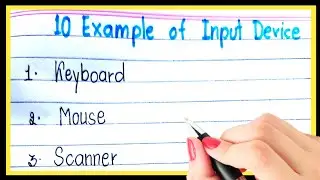 10 Example of Input Device
1. Keyboard
2. Mouse
3. Scanner